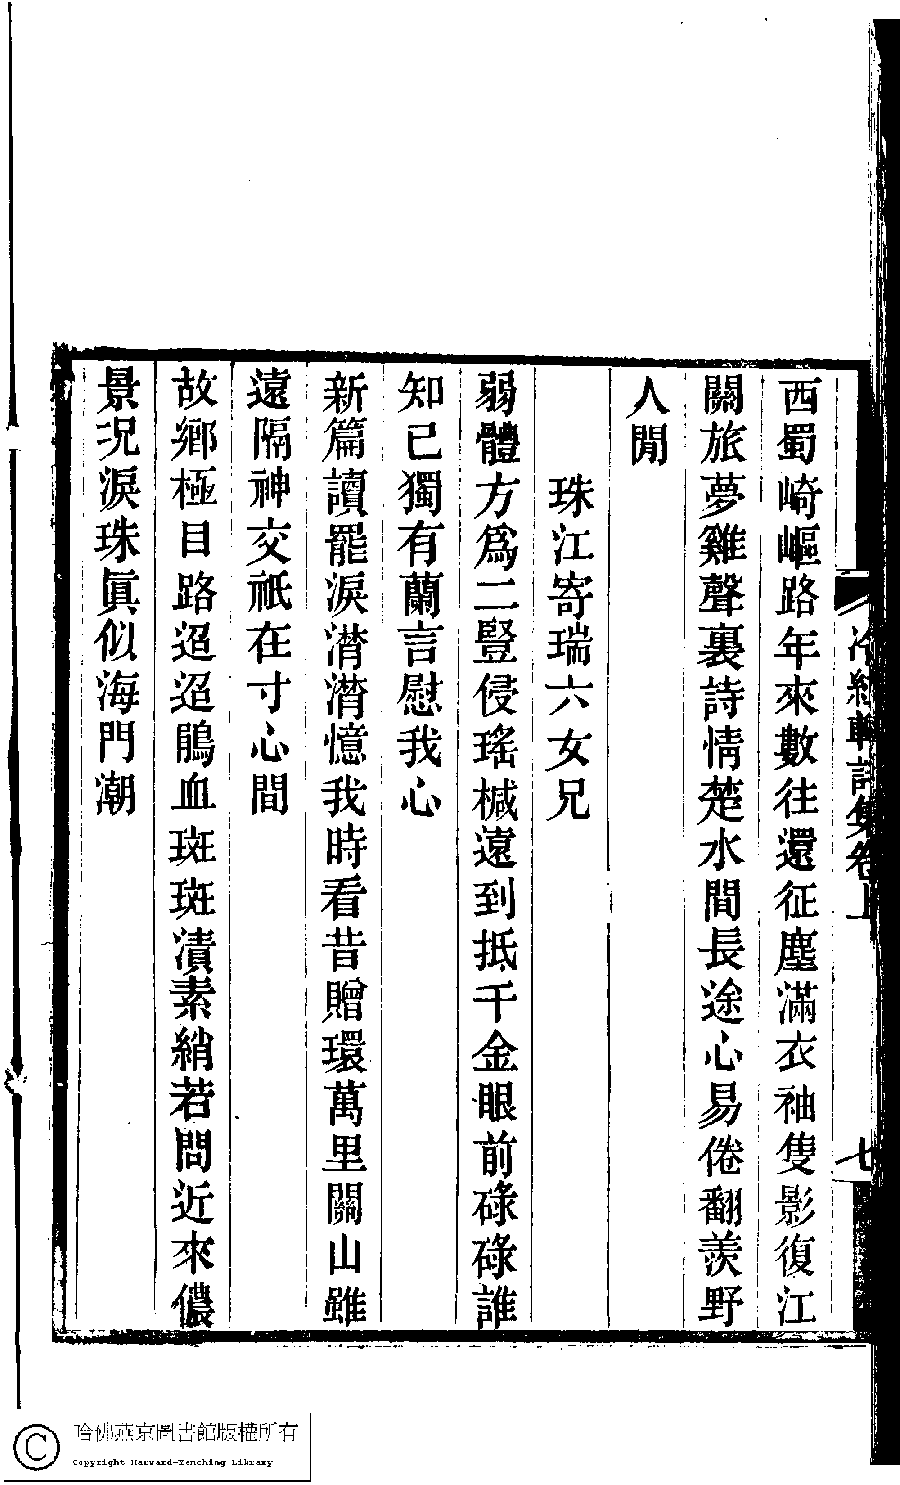 冷紅軒詩集卷上
七
西蜀崎嶇路年來數往還征塵滿衣袖隻影復江
關旅夢雞聲裏詩情楚水間長途心易倦翻羨野
人閒
珠江寄瑞六女兄
弱體方爲二豎侵瑤槭遠到抵千金眼前碌碌誰
知已獨有蘭言慰我心
新篇讀罷淚潸潸憶我時看昔贈環萬里關山雖
遠隔神交祇在寸心間
故鄉極目路迢迢鵑血斑斑漬素綃若問近來儂
景况淚珠眞似海門潮
哈佛燕京圖書館版權所有
Copyright Harvard-Yenching Library